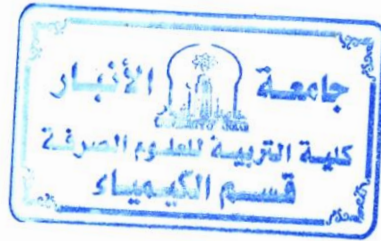 جامعة الأنبار
كلية التربية للعلوم الصرفة
قسم الكيمياء